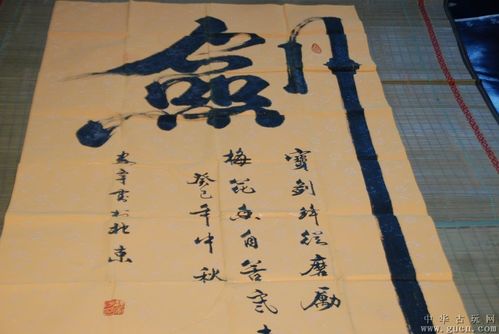 劍
寶劍鋒從磨勵
梅花香自苦寒
癸巳年中秋
辛書於北京
中华古玩网
www.gucn.com